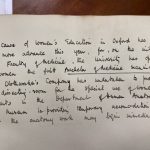 cause of Women's Education in Oxford has
more advance this year, for, on the
Faculty of Medicine, the University has
women the first Bachelor of Medicine
Clothworker's Company has undertaken to
dissecting-room for the special use of women
in the Department of Human Anatomy
Museum is providing temporary accommodation
the anatomy work may begin